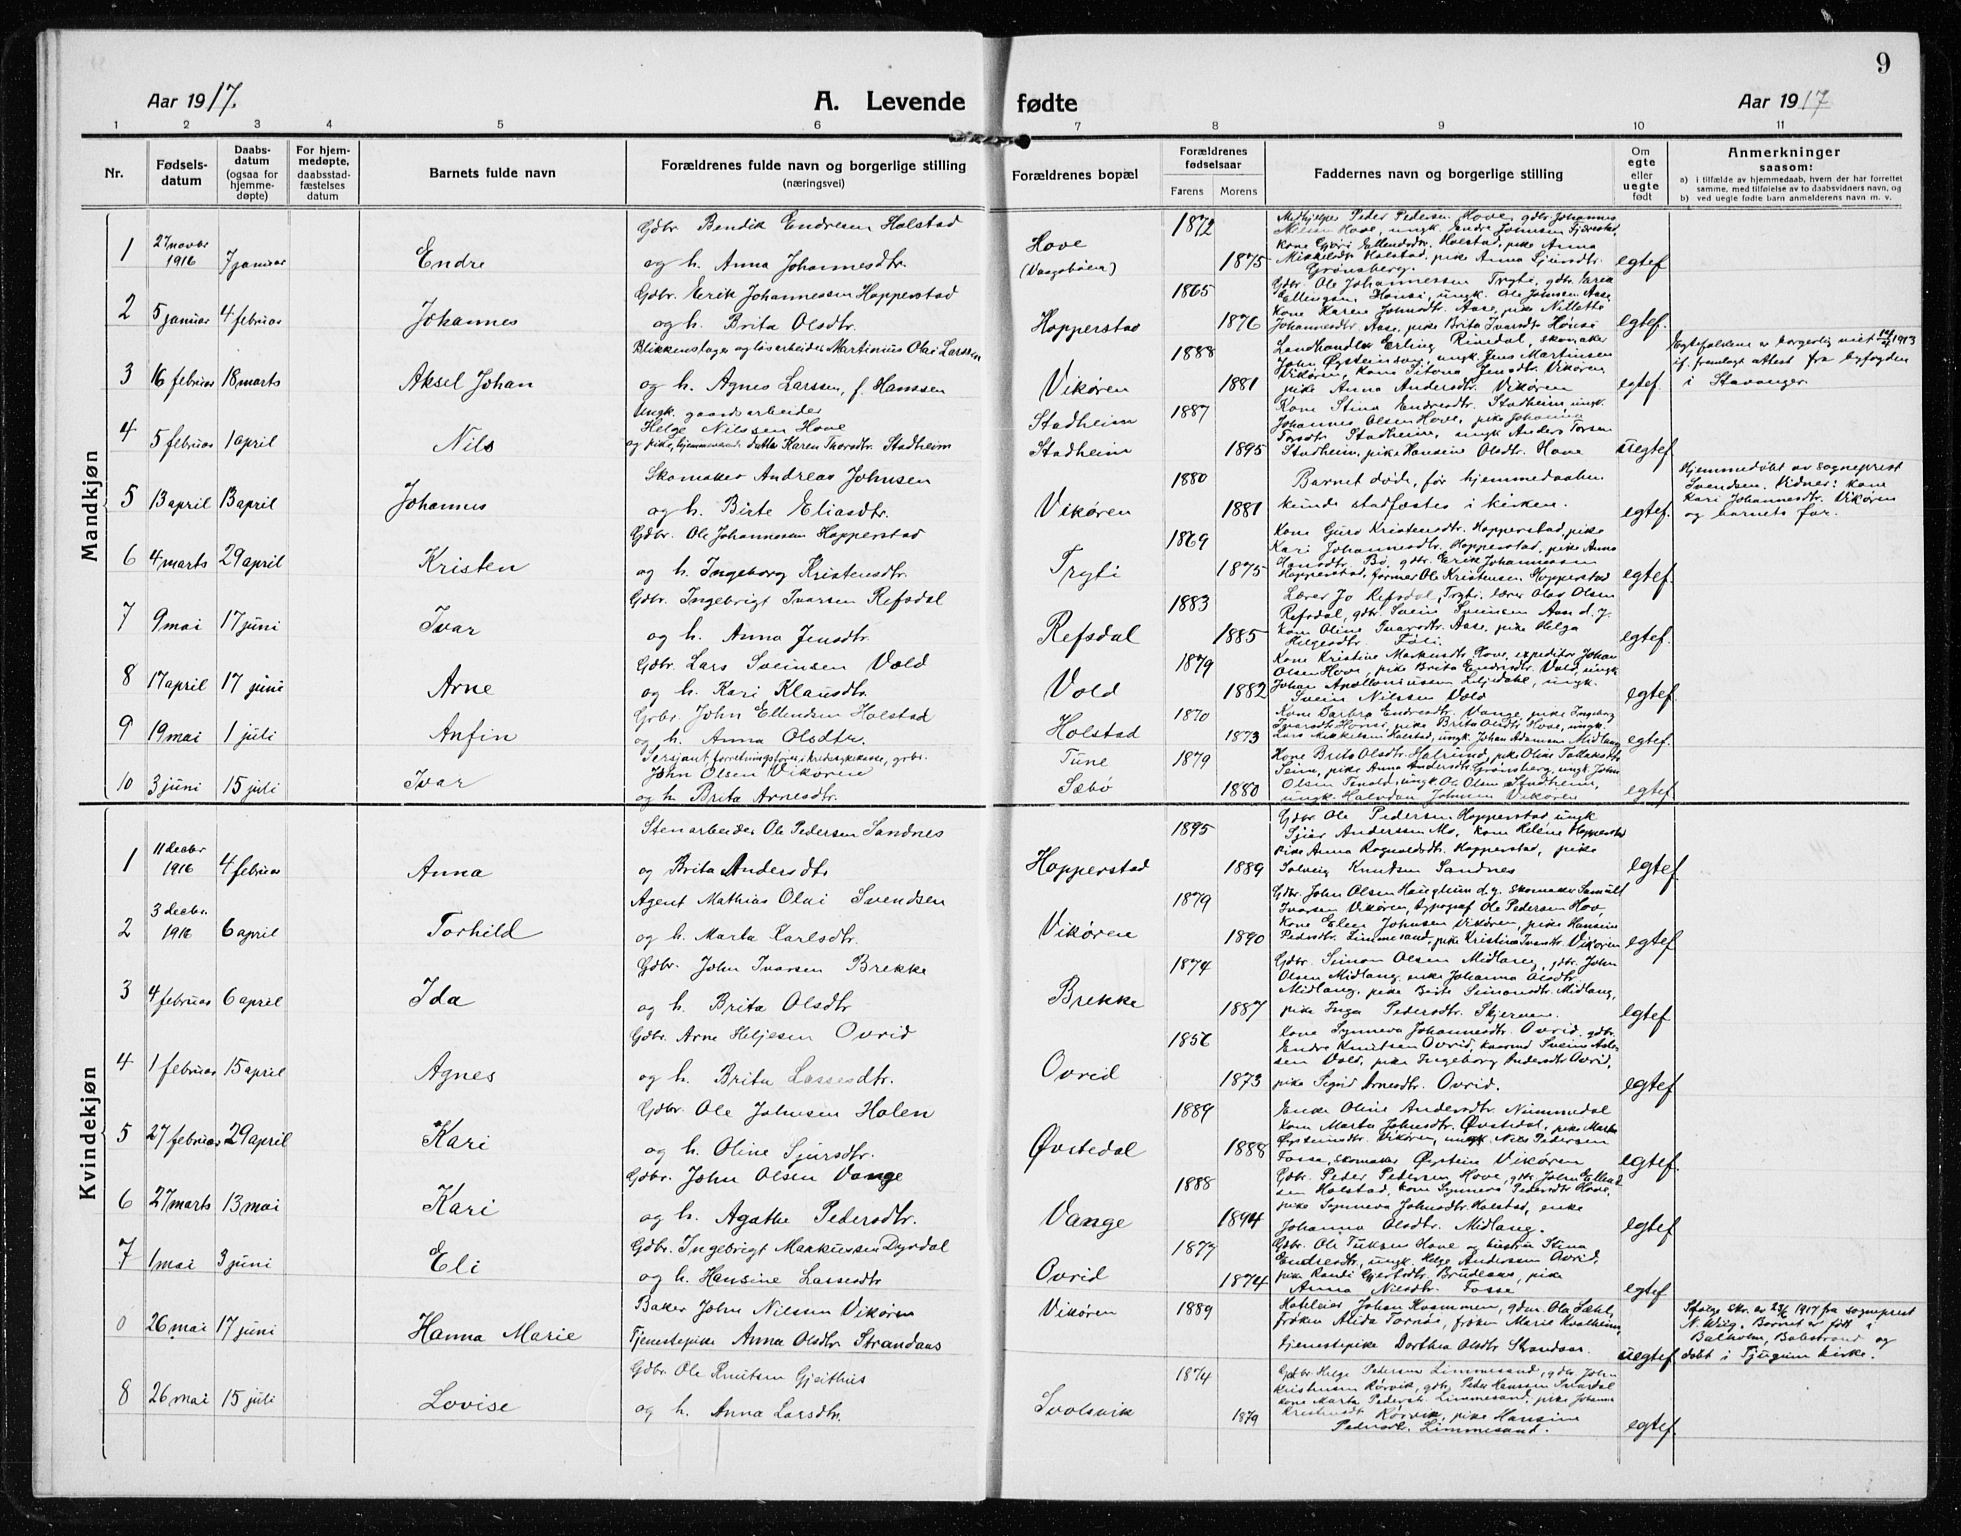 9
Aar 1917. A. Levende fødte Aar 1917
1 2 3 4 5 6 7 8 9 10 11
Nr. Fødsels-datum Daabs-datum (ogsaa for hjemme-døpte) For hjem-medøpte, daabsstad-fæstelses datum Barnets fulde navn Forældrenes fulde navn og borgerlige stilling (næringsvei) Forældrenes bopæl Forældrenes fødselsaar Farens Morens Faddernes navn og borgerlige stilling Om egte eller uegte født Anmerkninger saasom:
a) i tilfælde av hjemmedaab, hvem der har forrettet samme, med tilføielse av to daabsvidners navn, og
b) ved uegte fødte barn anmelderens navn m. v.
Mandkjøn
Gdbr. Bendik Endresen Holstad 1872 Medhjelper Peder Pedersen Hove, gdbr. Johannes
Nilsen Hove, ungk. Endre Johnsen
1 27 novbr 1916 7 januar Endre og h. Anna Johannesdtr. Hove 1875 kone Ellendsdtr. Holstad, pike Anna
Mikkelsdtr. Holstad, pike Anna Sjursdtr. egtef
Grønsberg.
Gdbr. Erik Johannessen Hopperstad 1865 Gdbr. Ole Johannessen Tryti, gdbr.
Ellingsen Hønsi, ungk. Ole Johnsen Aase,
2 5 januar 4 februar Johannes og h. Brita Olsdtr. Hopperstad 1876 Kone Karen Johnsdtr. Aase, pike Nillette
Johannesdtr. Aase, pike Brita Ivarsdtr. Hønsi egtef.
Blikkenslager og løsarbeider Martinius Olai Larssen 1888 Landhandler Erling Rinedal, skomaker
John Øysteinson, ungk. Jens Martinsen
3 16 februar 18 marts Aksel Johan og h. Agnes Larssen, f. Hanssen Vikøren 1881 Vikøren, kone Jensdtr. Vikøren
pike Anna Andersdtr. Vikøren egtef. Egtefoldene er borgerlig viet 1913
if. fremlagt attest fra byfogden
i Stavanger.
Ungk. gaardsarbeider
Helge Nilssen Hove Stadheim 1887 Kone Stina Endresdtr. Stadheim, ungk.
Johannes Olsen Hove, pike Johanna
4 5 februar 1 april Nils og pike, hjemmeværende datter Karen Thorsdtr. Stadheim Stadheim 1895 Torsdtr. Stadheim, ungk Anders Torsen
Stadheim, pike Hansine Olsdtr. Hove uegtef
Skomaker Andreas Johnsen 1880 Barnet døde, før hjemmedaaben
5 13 april 13 april Johannes og h. Birte Eliasdtr. Vikøren 1881 kunde stadfæstes i kirken. egtef. Hjemmedøbt av sogneprest
Svendsen. Vidner: kone
Kari Johannesdtr. Vikøren
og barnets far.
Gdbr. Ole Johannessen Hopperstad 1869 Kone Guro Kristensdtr. Hopperstad, pike
Kari Johannesdtr. Hopperstad, pike Anna
6 4 marts 29 april Kristen og h. Ingeborg Kristensdtr. Tryti 1875 Hansdtr. Bø, gdbr. Erik Johannessen
Hopperstad, former Ole Kristensen Hopperstad egtef.
Gdbr. Ingebrigt Ivarsen Refsdal 1883 Lærer Jo Refsdal, Tryti, lærer Olav Olsen
Refsdal, gdbr. Svein Sveinsen Aase d.y.
7 9 mai 17 juni Ivar og h. Anna Jensdtr. Refsdal 1885 kone Oline Ivarsdtr. Aase, pike Helga
Helgesdtr. Føli. egtef.
Gdbr. Lars Sveinsen Vold 1879 Kone Kristine Markusdtr. Hove, expeditør Johan
Olsen Hove, pike Brita Endresdtr. Vold, ungk.
8 17 april 17 juni Arne og h. Kari Klausdtr. Vold 1882 Johan Apolloniussen Liljedahl, ungk.
Svein Nilssen Vold egtef.
Grbr. John Ellendsen Holstad Holstad 1870 Kone Barbra Endresdtr. Vange, pike Ingeborg
Ivarsdtr. Hønsi, pike Brita Olsdtr. Hove, ungk.
9 19 mai 1 juli Anfin og h. Anna Olsdtr. 1873 Lars Mikkelsen Holstad, ungk. Johan Adamsen Midlang egtef.
Sersjant, forretningsfører i kredssykekasse, grbr.
John Olsen Vikøren Tune 1879 Kone Brita Olsdtr. pike Oline
10 3 juni 15 juli Ivar og h. Brita Arnesdtr. Sæbø 1880 Seim, pike Anna Andersdtr. Grønsberg, ungk. John
Olsen Tenold, ungk. Ole Olsen Stadheim,
ungk. Halvdan Johnsen Vikøren egtef.
Kvindekjøn
Stenarbeider Ole Pedersen Sandnes 1895 Gdbr Ole Pedersen Hopperstad ungk
Anderssen Mo, kone Helene Hopperstad
1 11 decbr 1916 4 februar Anna og Brita Andersdtr Hopperstad 1889 Pike Anna Rognaldsdtr. Hopperstad, pike
Solveig Knutsen Sandnes egtef.
Agent Mathias Olai Svendsen 1879 Gdbr. John Olsen Hauglum d.y. skomaker Samuel
Ivarsen Vikøren, typograf Ole Pedersen Hov,
2 3 decbr. 1916 6 april Torhild og h. Marta Karlsdtr. Vikøren 1890 Kone Elen Johnsen Vikøren, pike Hansine
Pedersdtr. Limmesand, pike Kristine Ivarsdtr. Vikøren egtef
Gdbr. John Ivarsen Brekke 1874 Gdbr. Simon Olsen Midlang, gdbr. John
Olsen Midlang, enke Johanna Olsdtr.
3 4 februar 6 april Ida og h. Brita Olsdtr Brekke 1887 Midlang, pike Brite Simonsdtr. Midlang,
pike Inga Pedersdtr. Skjerven. egtef
Gdbr. Arne Heljesen Ovrid 1856 Kone Synneva Johannesdtr. Ovrid, gdbr.
Endre Knutsen Ovrid, Svein
4 1 februar 15 april Agnes og h. Brita Lassesdtr. Ovrid 1873 sen Vold, pike Ingeborg Andersdtr Ovrid,
pike Sigrid Arnesdtr. Ovrid. egtef
Gdbr. Ole Johnsen Holen 1889 Enke Oline Andersdtr. Nummedal
kone Marta Johnsdtr. Øvstedal, pike Marta
5 27 februar 29 april Kari og h. Oline Sjursdtr. Øvstedal 1888 Øysteinsdtr. Vikøren, ungk Nils Pedersen
Fosse, skomaker Øystein Vikøren egtef.
Gdbr. John Olsen Vange 1888 Gdbr. Peder Pedersen Hove, gdbr John Ellend
sen Holstad, kone Synneva Pedersdtr Hove,
6 27 marts 13 mai Kari og h. Agathe Pedersdtr. Vange 1894 pike Synneva Johnsdtr. Holstad, enke
Johanna Olsdtr. Midlang. egtef
Gdbr. Ingebrigt Markussen Dyrdal 1877 Gdbr. Ole Hove og hustru Stina
Endresdtr, ungk. Helge Andersen Ovrid,
7 1 mai 3 juni Eli og h. Hansine Lassesdtr Ovrid 1874 pike Randi Gjertsdtr. pike
Anna Nilsdtr. Fosse egtef
Baker John Nilssen Vikøren Vikøren 1889 Hoteleier Johan Kvammen, gdmr. Ola Sæhl,
frøken Alida Tornøe, frøken Marie Kvalheim,
0 26 mai 17 juni Hanna Marie Tjenestepike Anna Olsdtr Strandaas tjenestepike Dorthea Olsdtr uegtef. Ifølge skr. av 23/6 1917 fra sogneprest
N. Wiig. Barnet er født i
Balholm, Balestrand og
døbt i Tjugum kirke.
Gdbr. Ole Knutsen Gjeithus 1874 Gdbr. Helge Pedersen Limmesand, gdbr John
Kristensen Rørvik, gdbr Peder Hanssen
8 26 mai 15 juli Lovise og h. Anna Larsdtr. Svolsvik 1879 kone Marta Pedersdt. Limmesand, pike Johanna
Rørvik, pike Hansine
Pedersdtr. Limmesand. egtef.